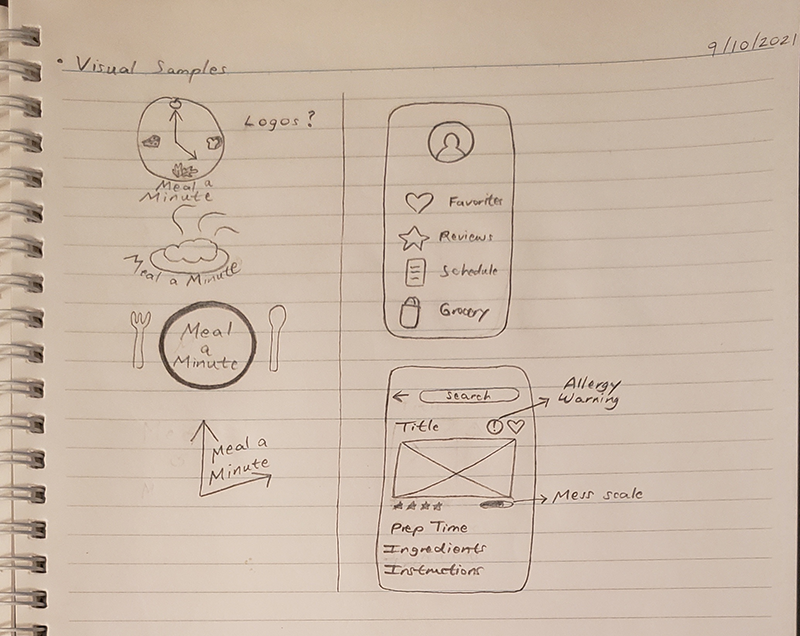 9/10/2021
• Visual Samples
Logos?
Meal a
Minute
Meal a Minute
Meal
a
Minute
Meal a
Minute
Favorites
Reviews
Schedule
Grocery
Search
Allergy
Warning
Title
Mess scale
Prep Time
Ingredients
Instructions